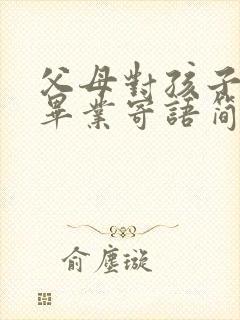 父母對孩子
畢業寄語簡
俞塵璇